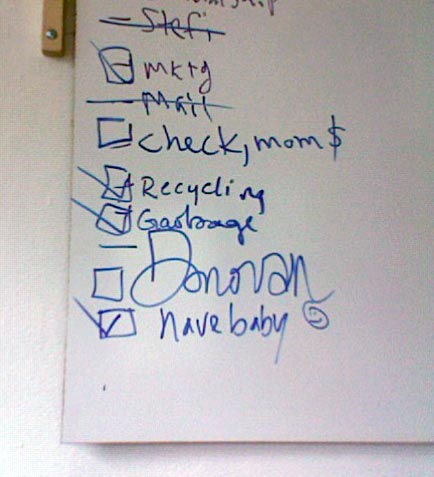 - Stefi
mktg
- Mail
check, mom $
Recycling
Garbage
- Donovan
have baby ☺